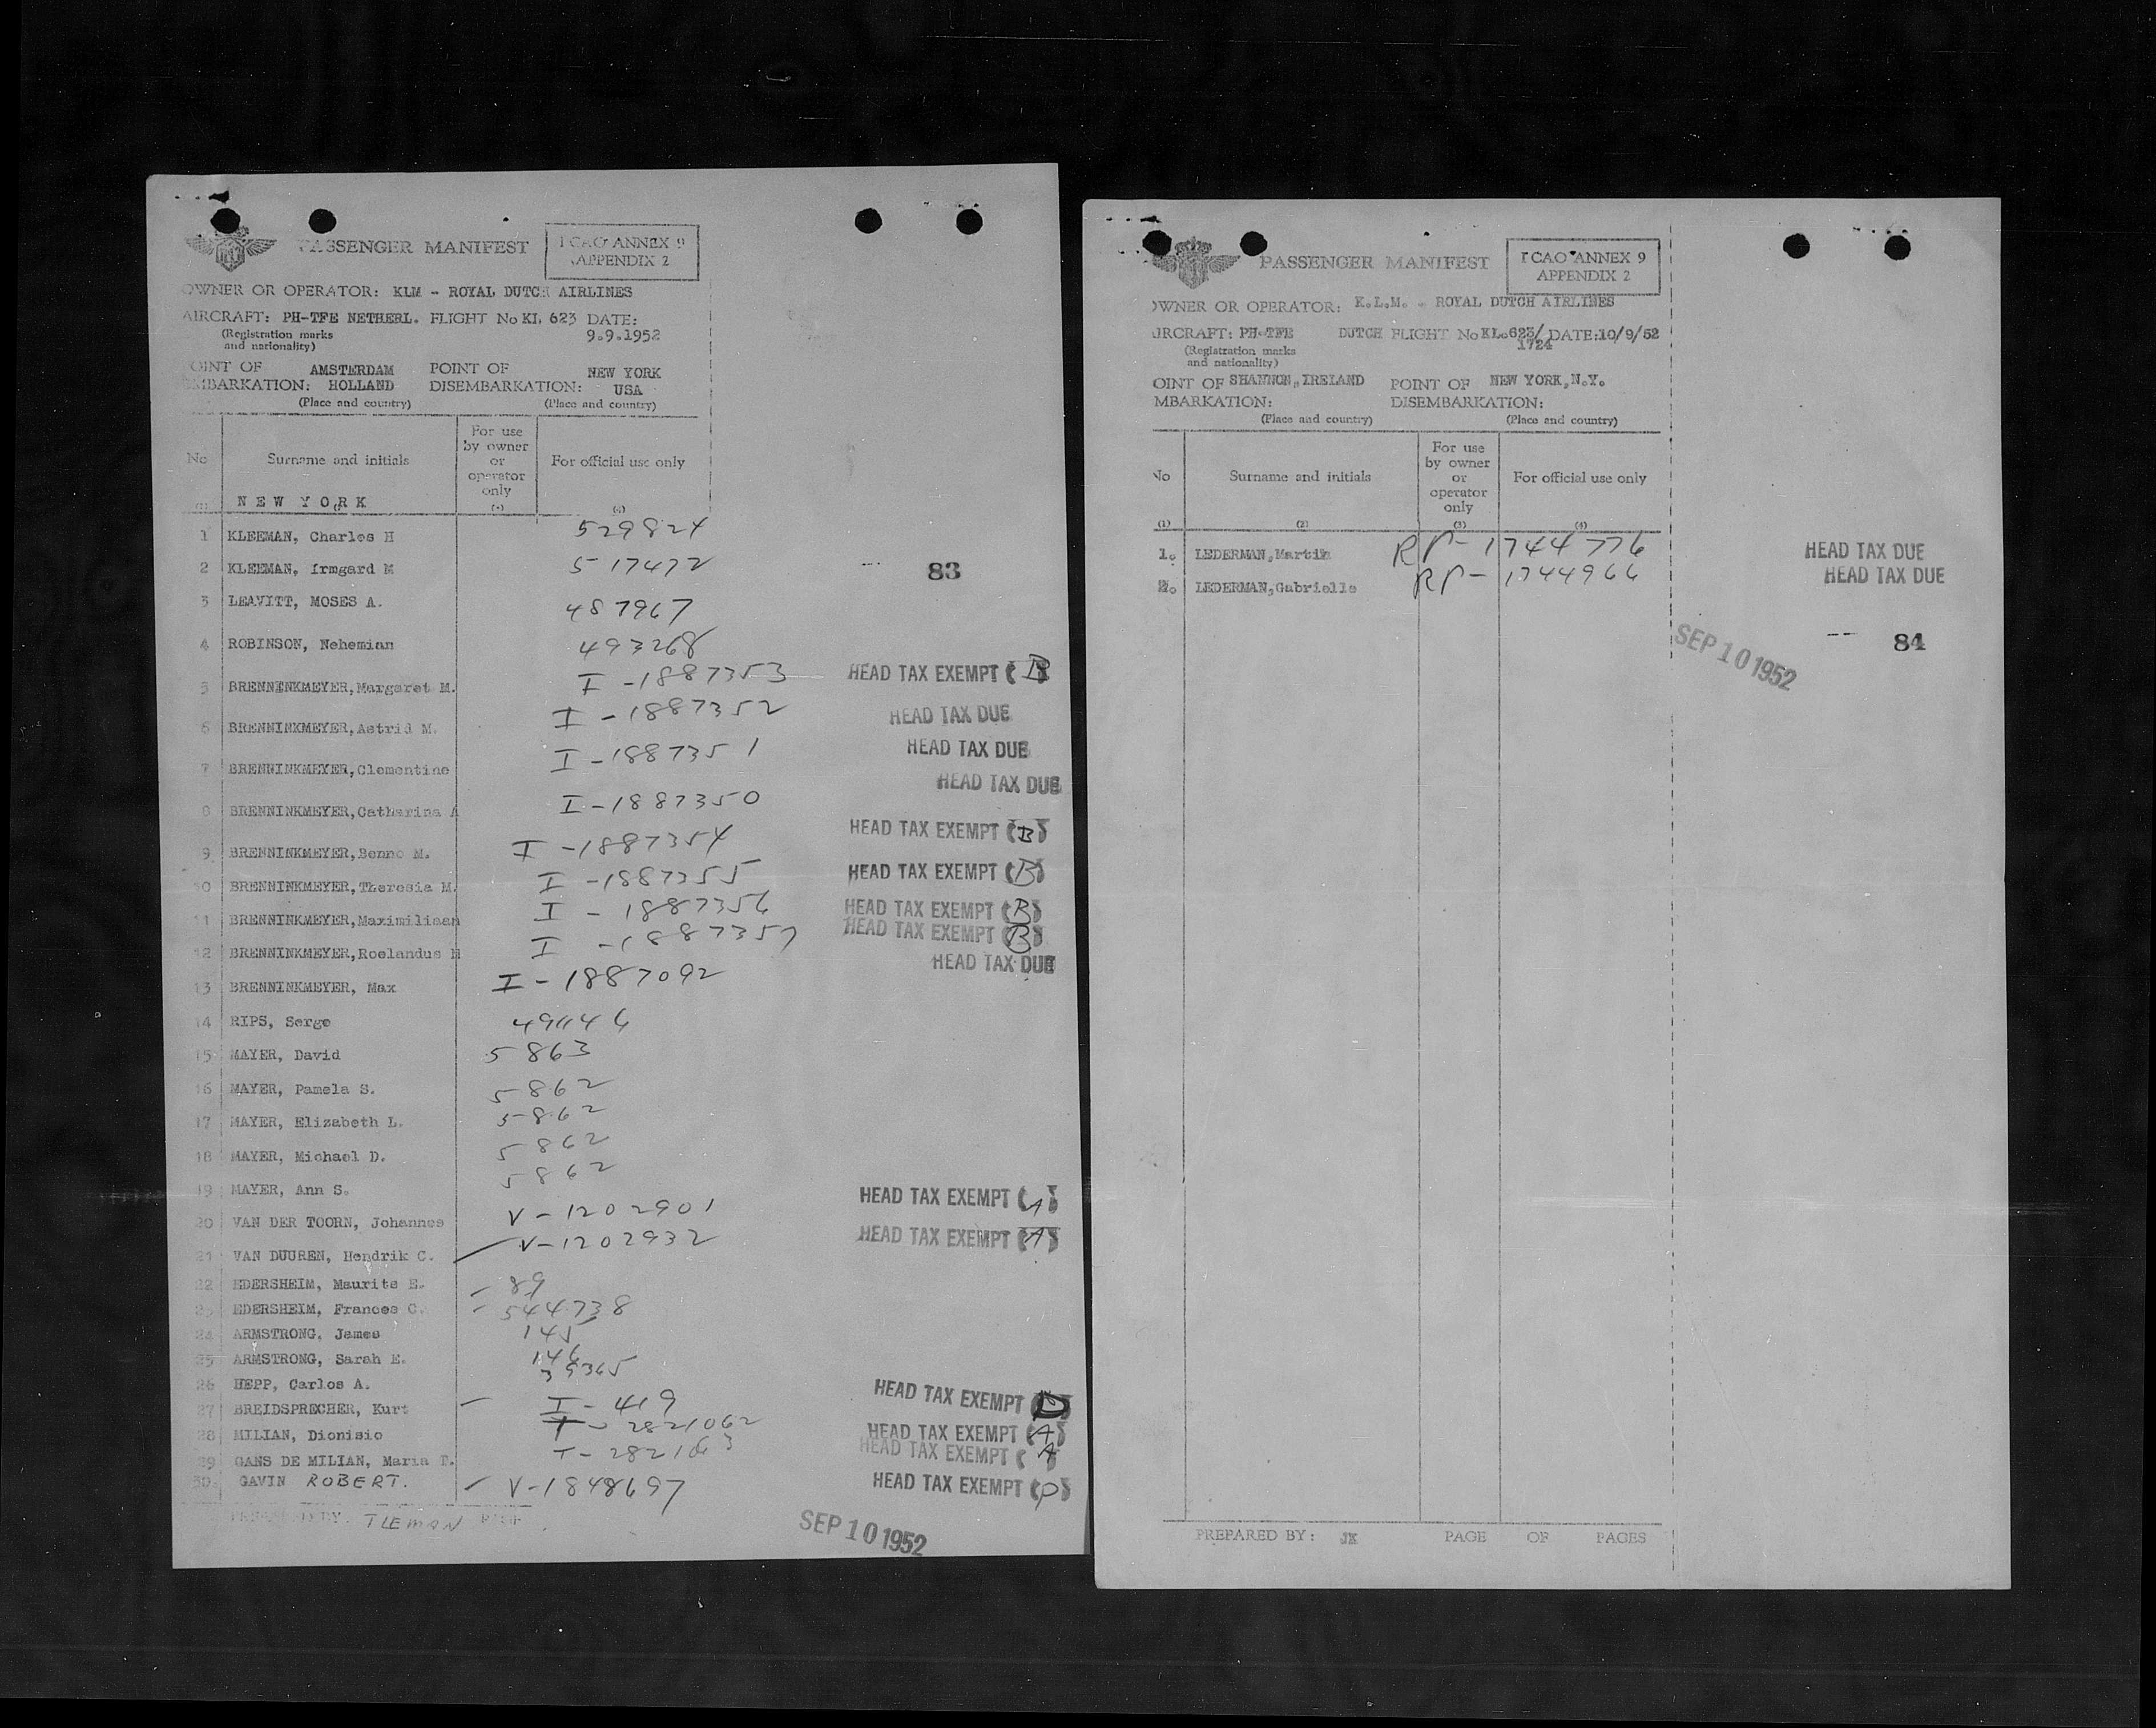 PASSENGER MANIFEST
ICAO ANNEX 9
APPENDIX 2
OWNER OR OPERATOR: KLM - ROYAL DUTCH AIRLINES
AIRCRAFT: PH-TFE NETHERL. FLIGHT No KL 623 DATE:
(Registration marks and nationality)
9.9.1952
POINT OF EMBARKATION: AMSTERDAM HOLLAND
(Place and country)
POINT OF DISEMBARKATION: NEW YORK USA
(Place and country)
No
Surname and initials
For use by owner or operator only
For official use only
NEW YORK
1 KLEEMAN, Charles H 529824
2 KLEEMAN, Irmgard M 517472
83
3 LEAVITT, MOSES A. 487967
4 ROBINSON, Nehemian 493268
5 BRENNINKMEYER,Margaret M. I-1887353 HEAD TAX EXEMPT (B)
6 BRENNINKMEYER,Astrid M. I-1887352 HEAD TAX DUE
7 BRENNINKMEYER,Clementine I-1887351 HEAD TAX DUE
8 BRENNINKMEYER,Catharina A I-1887350 HEAD TAX DUE
9 BRENNINKMEYER,Benno M. I-1887354 HEAD TAX EXEMPT (B)
10 BRENNINKMEYER,Theresia M. I-1887355 HEAD TAX EXEMPT (B)
11 BRENNINKMEYER,Maximiliaan I-1887356 HEAD TAX EXEMPT (B)
12 BRENNINKMEYER,Roelandus H I-1887357 HEAD TAX EXEMPT (B)
13 BRENNINKMEYER, Max I-1887092 HEAD TAX DUE
14 RIPS, Serge 491146
15 MAYER, David 5863
16 MAYER, Pamela S. 5862
17 MAYER, Elizabeth L. 5862
18 MAYER, Michael D. 5862
19 MAYER, Ann S. 5862
20 VAN DER TOORN, Johannes V-1202901 HEAD TAX EXEMPT (A)
21 VAN DUUREN, Hendrik C. V-1202932 HEAD TAX EXEMPT (A)
22 EDERSHEIM, Maurits E. 89
23 EDERSHEIM, Frances C. 544738
24 ARMSTRONG, James 145
25 ARMSTRONG, Sarah E. 146
26 HEPP, Carlos A. 39365
27 BREIDSPRECHER, Kurt I-419 HEAD TAX EXEMPT
28 MILIAN, Dionisio T-2821062 HEAD TAX EXEMPT (A)
29 GANS DE MILIAN, Maria T. HEAD TAX EXEMPT (A)
30. GAVIN ROBERT. V-1848697 HEAD TAX EXEMPT (D)
PREPARED BY: TLEMAN PAGE
SEP 10 1952
PASSENGER MANIFEST
ICAO ANNEX 9
APPENDIX 2
OWNER OR OPERATOR: K.L.M. - ROYAL DUTCH AIRLINES
AIRCRAFT: PH-TFE DUTCH FLIGHT No KL.623/1724 DATE:10/9/52
(Registration marks and nationality)
OINT OF MBARKATION: SHANNON,IRELAND
(Place and country)
POINT OF DISEMBARKATION: NEW YORK,N.Y.
(Place and country)
No
Surname and initials
For use by owner or operator only
For official use only
(1) (2) (3) (4)
1. LEDERMAN,Martin RP-1744776 HEAD TAX DUE
2. LEDERMAN,Gabrielle RP-1744966 HEAD TAX DUE
84
SEP 10 1952
PREPARED BY: JK PAGE OF PAGES